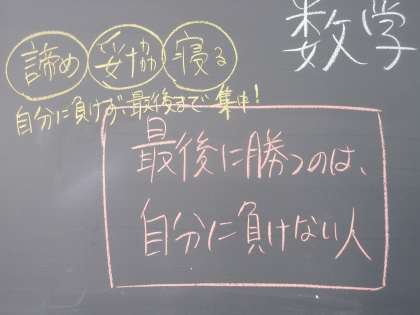 数学
諦め 妥協 寝る
自分に負けず最後まで集中!
最後に勝つのは、
自分に負けない人